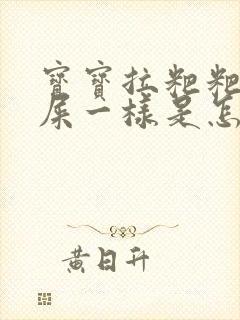 寶寶拉粑粑
屎一樣是怎
黃日升